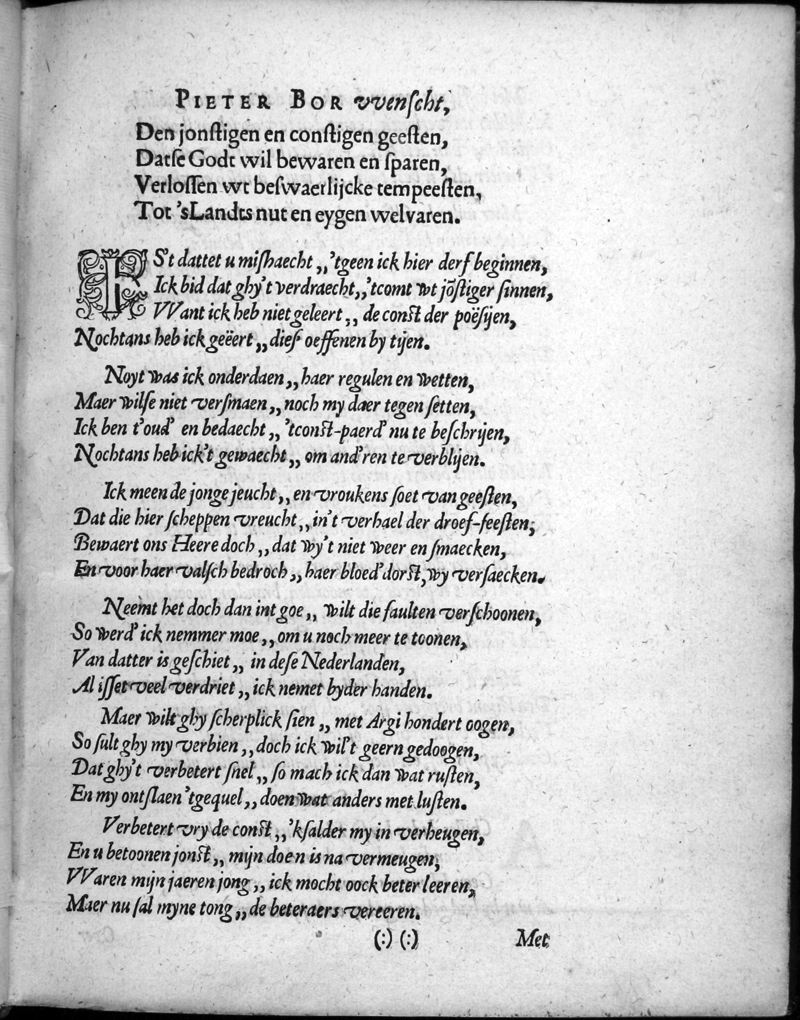 PIETER BOR vvenscht,
Den jonstigen en constigen geesten,
Datse Godt wil bewaren en sparen,
Verlossen wt beswaerlijcke tempeesten,
Tot 'sLandts nut en eygen welvaren.
IS't dattet u mishaecht,, 'tgeen ick hier derf beginnen,
Ick bid dat ghy't verdraecht,, 'tcomt wt jõstiger sinnen,
VVant ick heb niet geleert,, de const der poësijen,
Nochtans heb ick geëert,, dies oeffenen by tijen.
Noyt was ick onderdaen,, haer regulen en wetten,
Maer wilse niet versmaen,, noch my daer tegen setten,
Ick ben t'oud' en bedaecht,, 'tconst-paerd' nu te beschrijen,
Nochtans heb ick't gewaecht,, om and'ren te verblijen.
Ick meen de jonge jeucht,, en vroukens soet van geesten,
Dat die hier scheppen vreucht,, in't verhael der droef-feesten;
Bewaert ons Heere doch,, dat wy't niet weer en smaecken,
En voor haer valsch bedroch,, haer bloed'dorst, wy versaecken.
Neemt het doch dan int goe,, wilt die faulten verschoonen,
So werd' ick nemmer moe,, om u noch meer te toonen,
Van datter is geschiet,, in dese Nederlanden,
Al isset veel verdriet,, ick nemet byder handen.
Maer wilt ghy scherplick sien,, met Argi hondert oogen,
So sult ghy my verbien,, doch ick wil't geern gedoogen,
Dat ghy't verbetert snel,, so mach ick dan wat rusten,
En my ontslaen 'tgequel,, doen wat anders met lusten.
Verbetert vry de const,, 'ksalder my in verheugen,
En u betoonen jonst,, mijn doen is na vermeugen,
VVaren mijn jaeren jong,, ick mocht oock beter leeren,
Maer nu sal myne tong,, de beteraers vereeren.
(:) (:) Met